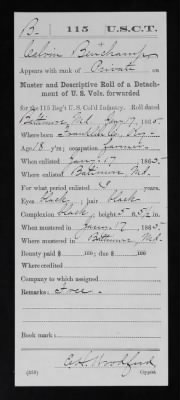 B- | 115 | U.S.C.T.
Calvin Beauchamp
Appears with rank of Private on
Muster and Descriptive Roll of a Detach-
ment of U. S. Vols. forwarded
for the 115 Reg't U. S. Col'd Infantry. Roll dated
Baltimore Md. Jany 17, 1865.
Where born Franklin Co, Ky.
Age 18 y'rs; occupation farmer
When enlisted Jany 17, 1865.
Where enlisted Baltimore Md.
For what period enlisted years.
Eyes black; hair black
Complexion black; height 5 ft. 5½ in.
When mustered in Jany 17, 1865.
Where mustered in Baltimore, Md.
Bounty paid $ 100; due $ 100
Where credited
Company to which assigned
Remarks: Free.
Book mark:
G.H. Woodford
(339) Copyist.